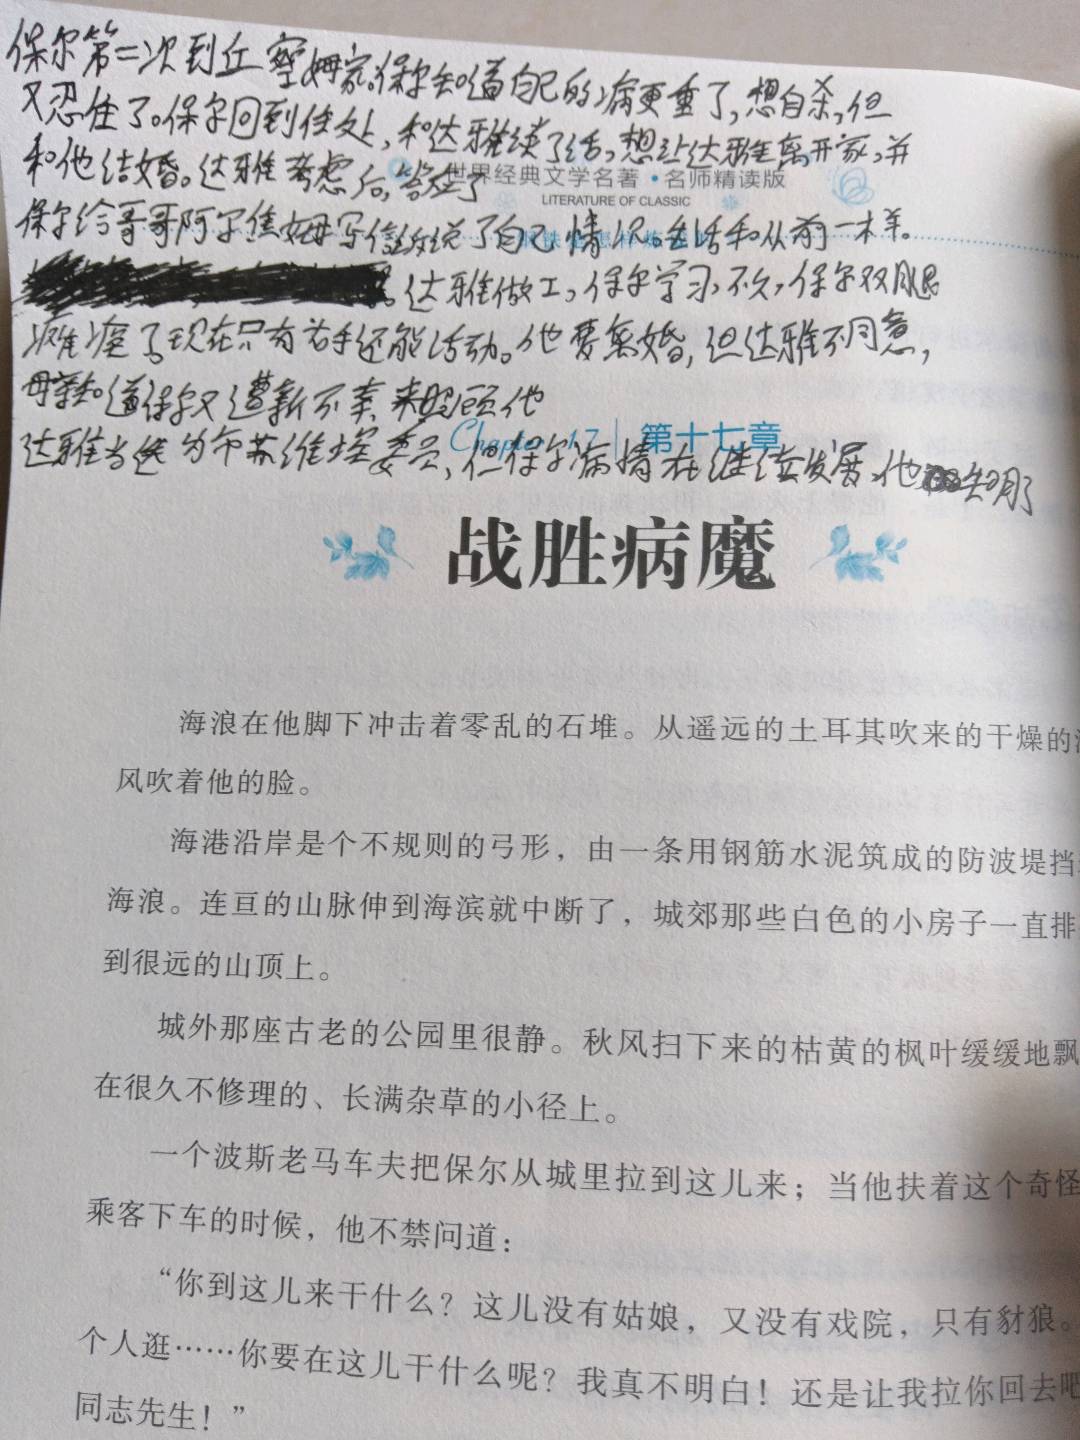 保尔第二次到丘 察姆家。保尔知道自己的病更重了，想自杀，但
又忍住了。保尔回到住处，和达雅谈了话，想让达雅离开家，并
和他结婚。达雅考虑后，答应了
世界经典文学名著·名师精读版
LITERATURE OF CLASSIC
保尔给哥哥阿尔焦姆写信，说了自己情况。生活和从前一样。
达雅做工，保尔学习，不久，保尔双腿
瘫痪了。现在只有右手还能活动。他要离婚，但达雅不同意，
母亲知道保尔又遭新不幸，来照顾他
Chapter 17 第十七章
达雅当选为市苏维埃委员，但保尔病情在继续发展，他
战胜病魔
海浪在他脚下冲击着零乱的石堆。从遥远的土耳其吹来的干燥的
风吹着他的脸。
海港沿岸是个不规则的弓形，由一条用钢筋水泥筑成的防波堤挡
海浪。连亘的山脉伸到海滨就中断了，城郊那些白色的小房子一直排
到很远的山顶上。
城外那座古老的公园里很静。秋风扫下来的枯黄的枫叶缓缓地飘
在很久不修理的、长满杂草的小径上。
一个波斯老马车夫把保尔从城里拉到这儿来；当他扶着这个奇怪
乘客下车的时候，他不禁问道：
“你到这儿来干什么？这儿没有姑娘，又没有戏院，只有豺狼。
个人逛……你要在这儿干什么呢？我真不明白！还是让我拉你回去吧
同志先生！”